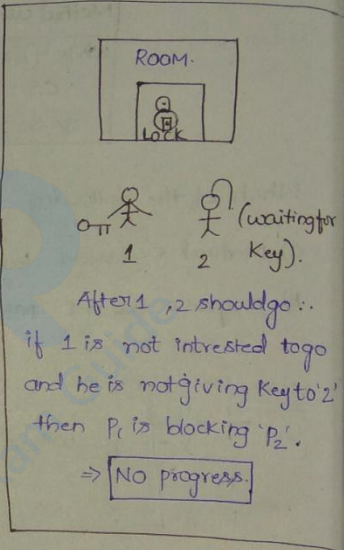 ROOM.
LOCK
1
2
(waiting for
Key).
After 1, 2 should go ∵
if 1 is not intrested to go
and he is not giving Key to '2'
then P₁ is blocking 'P₂'.
⇒ No progress.